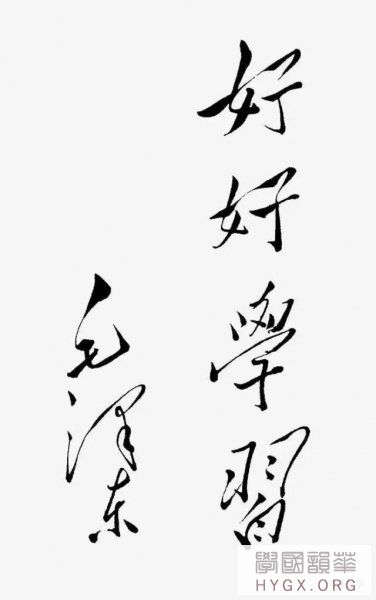 好好學習
毛泽东
華韻國學
HYGX.ORG